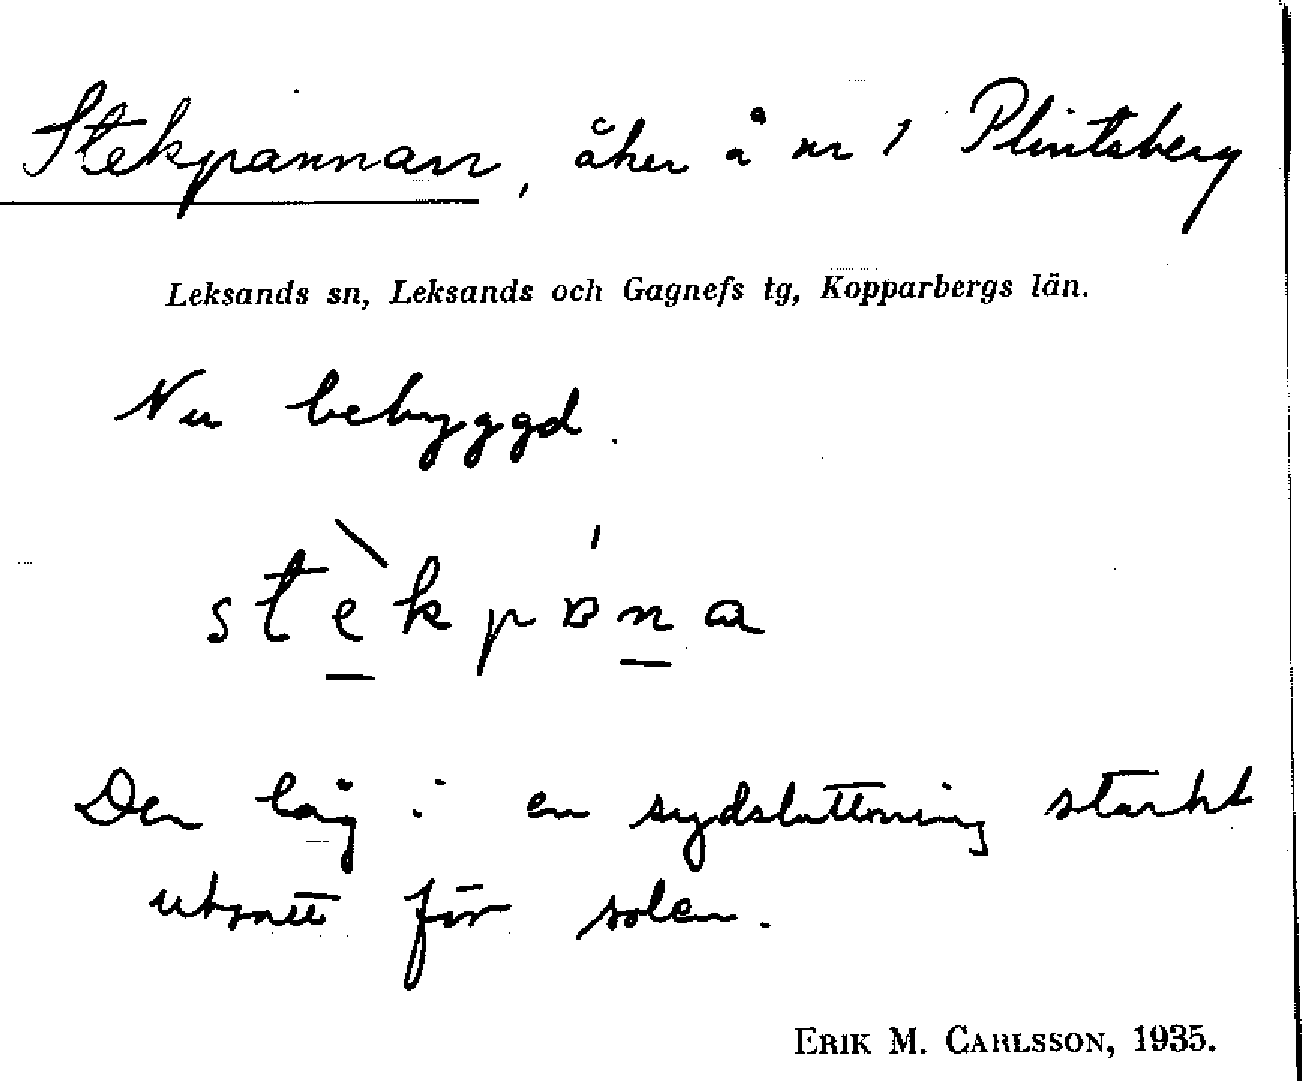 Stekpannan, åker å nr 1 Plintsberg
Leksands sn, Leksands och Gagnefs tg, Kopparbergs län.
Nu bebyggd.
Den låg i en sydsluttning starkt
utsatt för solen.
ERIK M. CARLSSON, 1935.